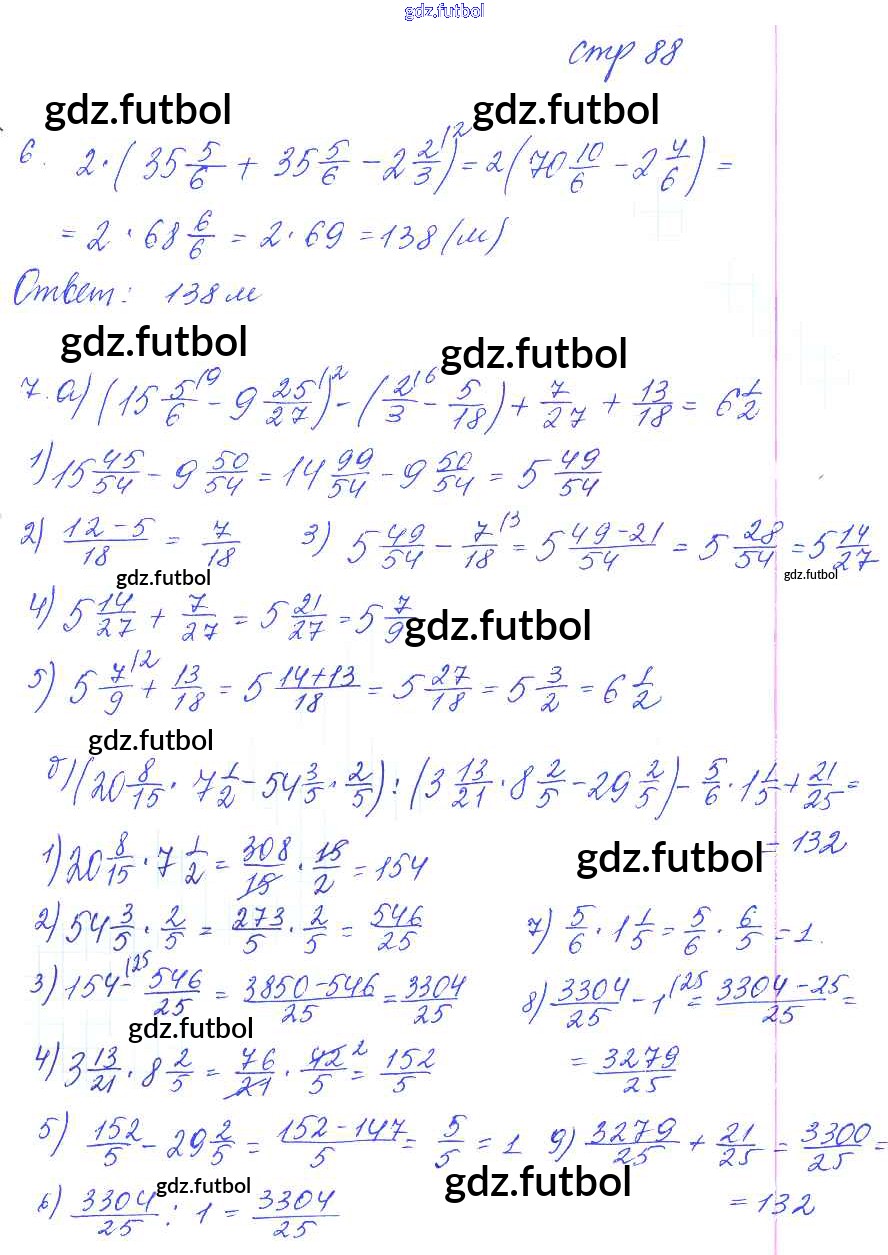 gdz.futbol
стр 88
gdz.futbol gdz.futbol
6. 2·(35 5/6 + 35 5/6 − 2 2/3\2) = 2(70 10/6 − 2 4/6) =
= 2 · 68 6/6 = 2 · 69 = 138 (м)
Ответ: 138 м
gdz.futbol gdz.futbol
7. а) (15 5/6\9 − 9 25/27\2) − (2/3\6 − 5/18) + 7/27 + 13/18 = 6 1/2
1) 15 45/54 − 9 50/54 = 14 99/54 − 9 50/54 = 5 49/54
2) 12−5/18 = 7/18 3) 5 49/54 − 7/18\3 = 5 49−21/54 = 5 28/54 = 5 14/27
gdz.futbol gdz.futbol
4) 5 14/27 + 7/27 = 5 21/27 = 5 7/9
gdz.futbol
5) 5 7/9\2 + 13/18 = 5 14+13/18 = 5 27/18 = 5 3/2 = 6 1/2
gdz.futbol
б) (20 8/15 · 7 1/2 − 54 3/5 · 2/5) : (3 13/21 · 8 2/5 − 29 2/5) − 5/6 · 1 1/5 + 21/25 =
= 132
1) 20 8/15 · 7 1/2 = 308/15 · 15/2 = 154
gdz.futbol
2) 54 3/5 · 2/5 = 273/5 · 2/5 = 546/25 7) 5/6 · 1 1/5 = 5/6 · 6/5 = 1.
3) 154\25 − 546/25 = 3850−546/25 = 3304/25 8) 3304/25 − 1\25 = 3304−25/25 =
gdz.futbol
4) 3 13/21 · 8 2/5 = 76/21 · 42 2/5 = 152/5 = 3279/25
5) 152/5 − 29 2/5 = 152−147/5 = 5/5 = 1 9) 3279/25 + 21/25 = 3300/25 =
gdz.futbol gdz.futbol
6) 3304/25 : 1 = 3304/25 = 132